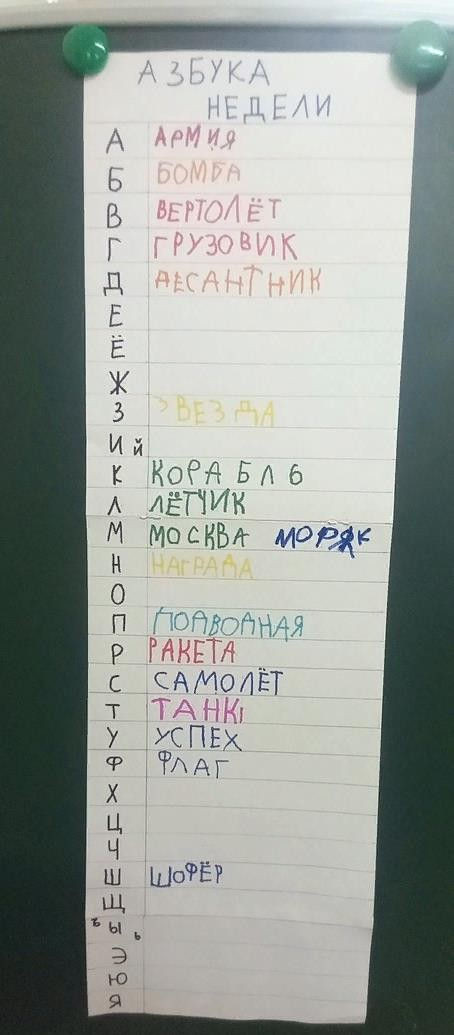 АЗБУКА
НЕДЕЛИ
А АРМИЯ
Б БОМБА
В ВЕРТОЛЁТ
Г ГРУЗОВИК
Д ДЕСАНТНИК
Е
Ё
Ж
З ЗВЕЗДА
И й
К КОРАБЛЬ
Л ЛЁТЧИК
М МОСКВА МОРЯК
Н НАГРАДА
О
П ПОДВОДНАЯ
Р РАКЕТА
С САМОЛЁТ
Т ТАНК
У УСПЕХ
Ф ФЛАГ
Х
Ц
Ч
Ш ШОФЁР
Щ
ъ Ы ь
Э
Ю
Я